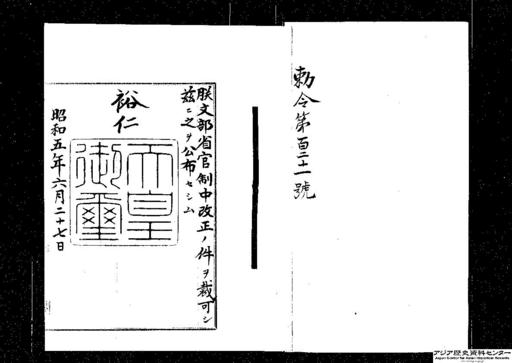 勅令第百二十一號
朕文部省官制中改正ノ件ヲ裁可シ
茲ニ之ヲ公布セシム
裕仁
天皇
御璽
昭和五年六月二十七日
アジア歴史資料センター
Japan Center for Asian Historical Records